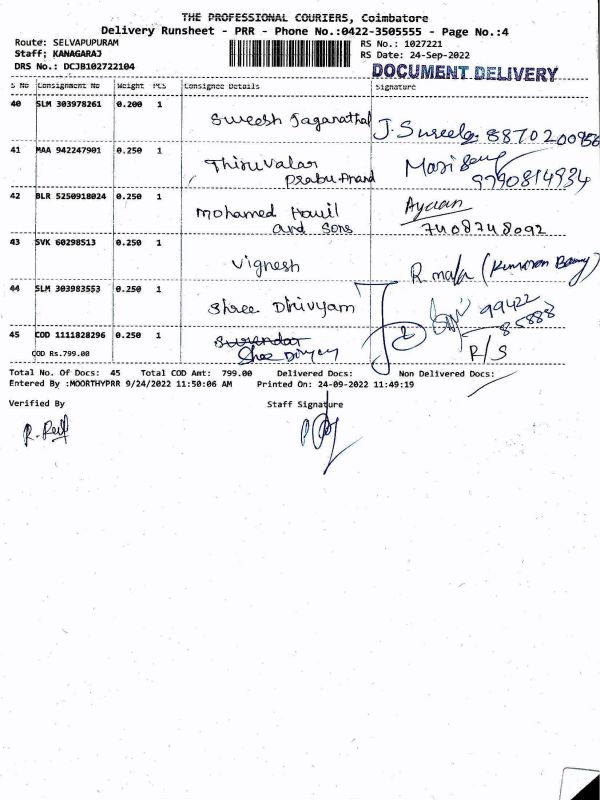 THE PROFESSIONAL COURIERS, Coimbatore
Delivery Runsheet - PRR - Phone No.:0422-3505555 - Page No.:4
Route: SELVAPUPURAM RS No.: 1027221
Staff; KANAGARAJ RS Date: 24-Sep-2022
DRS No.: DCJB102722104 DOCUMENT DELIVERY
S No Consignment No Weight PCS Consignee Details Signature
40 SLM 303978261 0.200 1 Sureesh Jaganathal 8870200956
41 MAA 942247901 0.250 1 Thiruvalar
Prabu Anand 9790814934
42 BLR 5250918024 0.250 1 Mohamed Ayaan
and Sons 7408748092
43 SVK 60298513 0.250 1 Vignesh R mala
44 SLM 303983553 0.250 1 Shree Dhivyam 99422
85888
45 COD 1111828296 0.250 1 R/S
COD Rs.799.00
Total No. Of Docs: 45 Total COD Amt: 799.00 Delivered Docs: Non Delivered Docs:
Entered By :MOORTHYPRR 9/24/2022 11:50:06 AM Printed On: 24-09-2022 11:49:19
Verified By Staff Signature